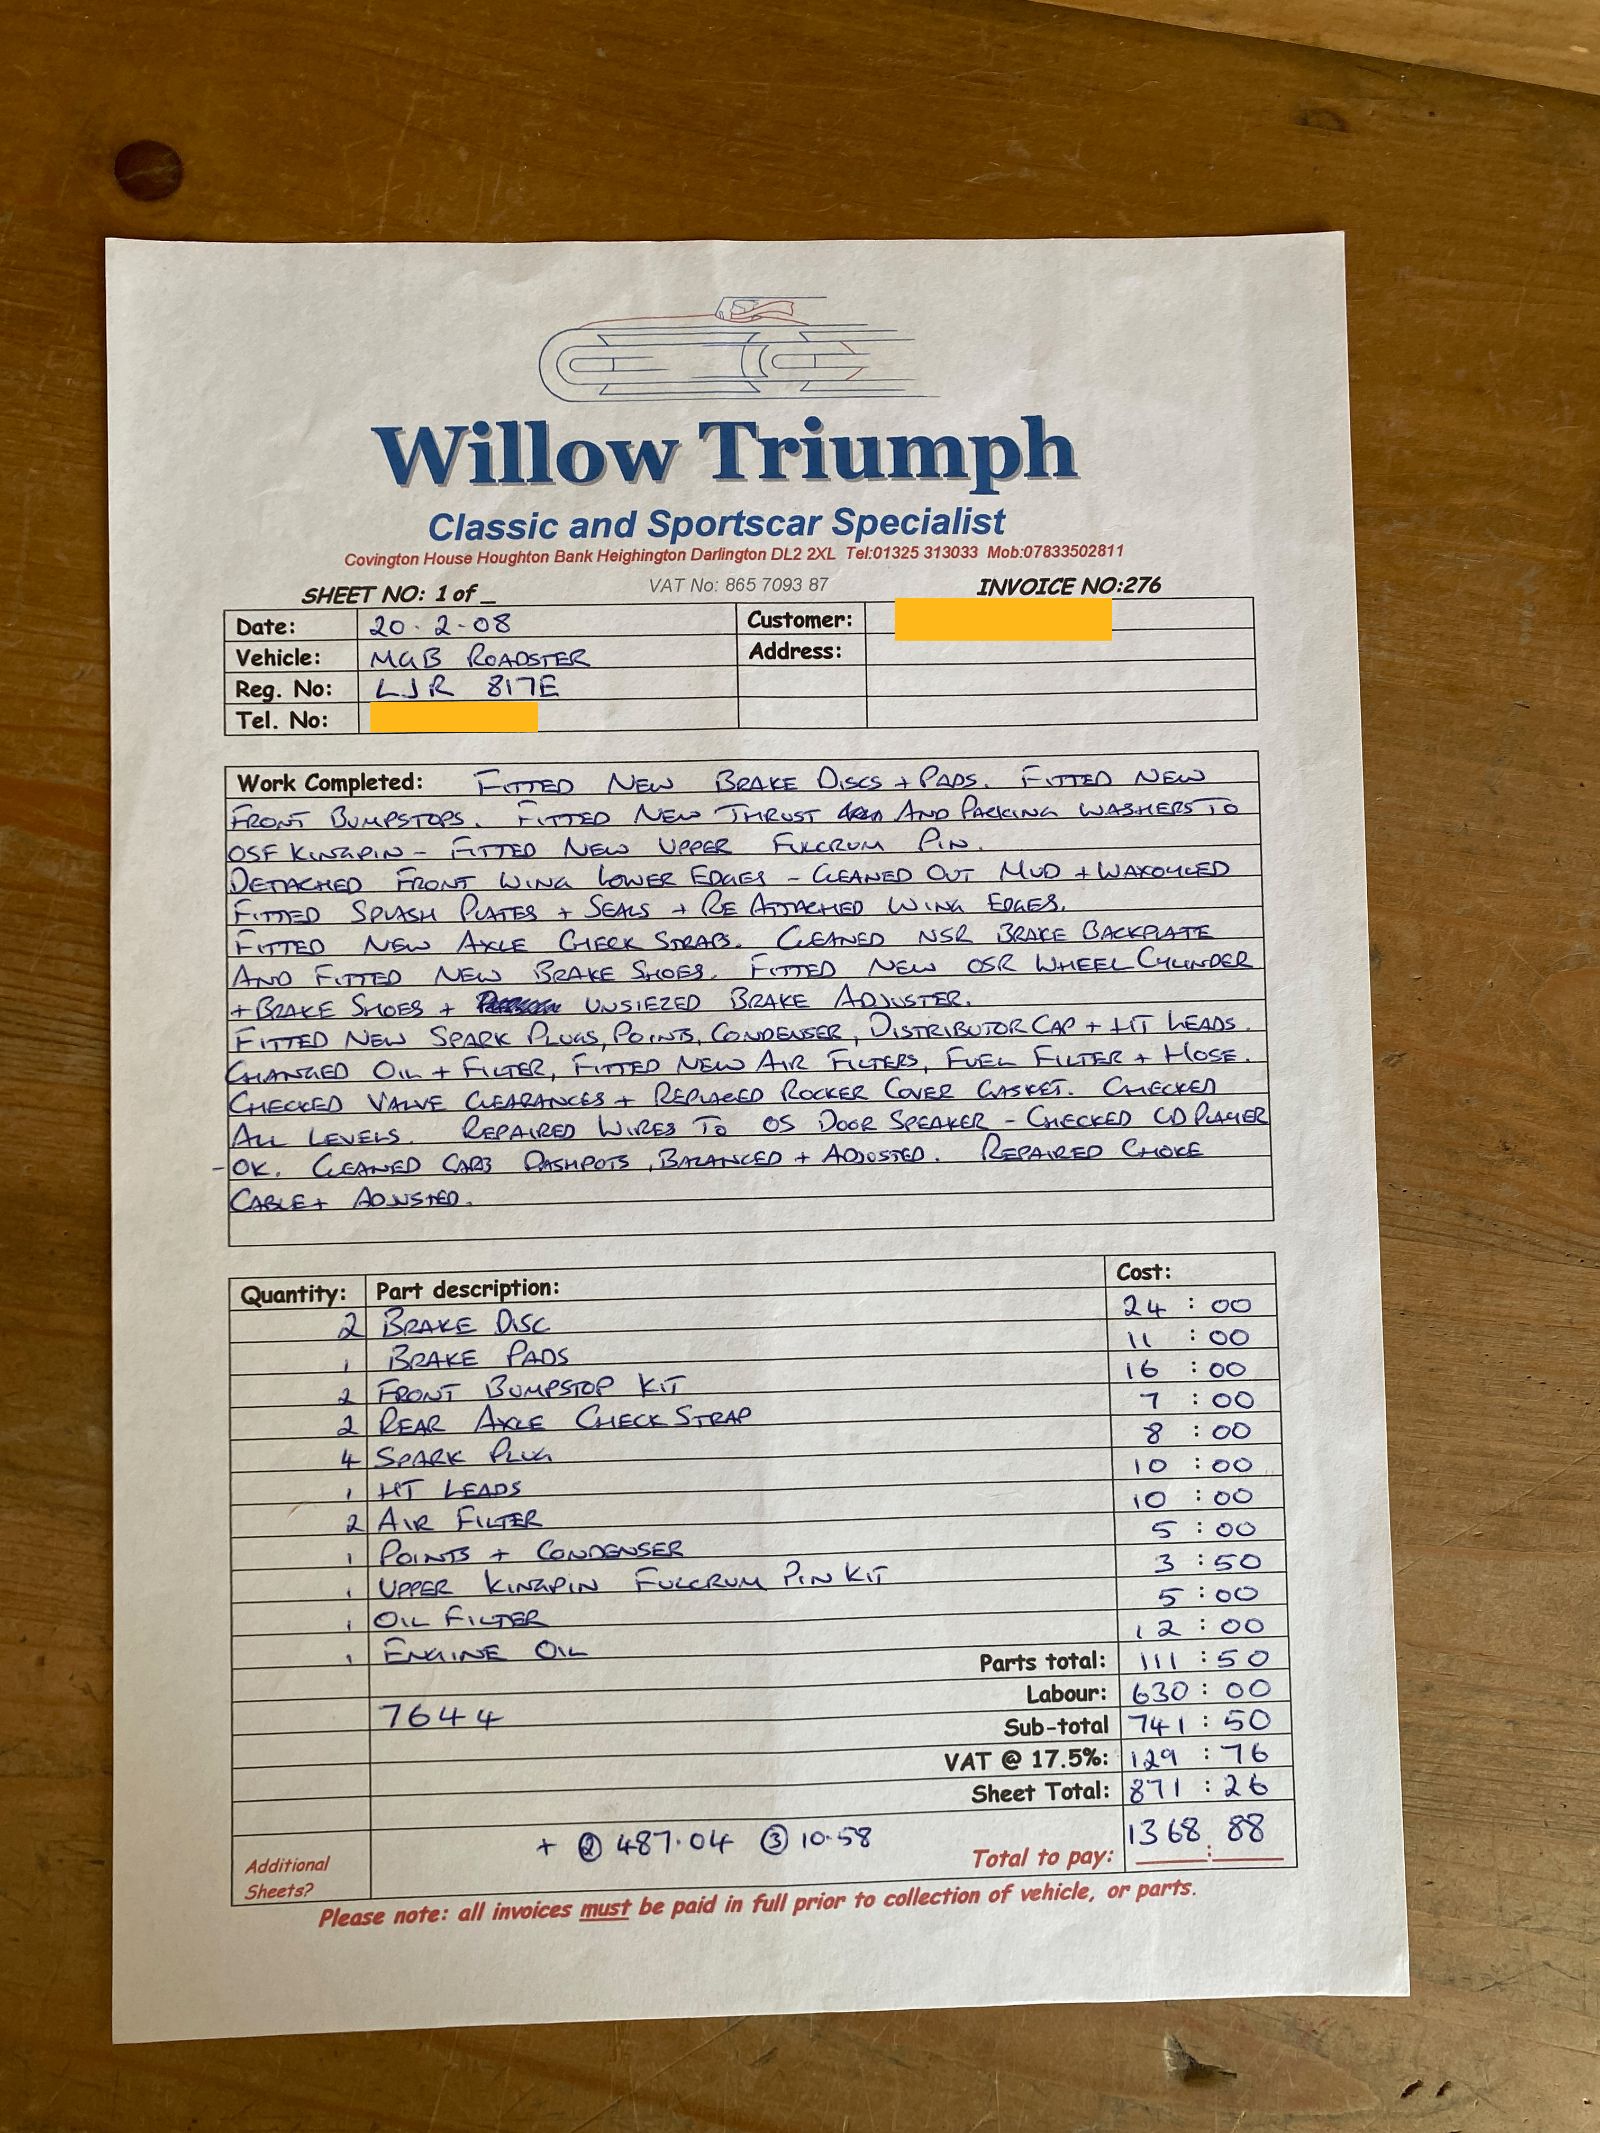 Willow Triumph
Classic and Sportscar Specialist
Covington House Houghton Bank Heighington Darlington DL2 2XL Tel:01325 313033 Mob:07833502811
SHEET NO: 1 of _ VAT No: 865 7093 87 INVOICE NO:276
Date: 20.2.08 Customer:
Vehicle: MGB ROADSTER Address:
Reg. No: LJR 817E
Tel. No:
Work Completed: FITTED NEW BRAKE DISCS + PADS. FITTED NEW
FRONT BUMPSTOPS. FITTED NEW THRUST AND PACKING WASHERS TO
OSF KINGPIN - FITTED NEW UPPER FULCRUM PIN.
DETACHED FRONT WING LOWER EDGES - CLEANED OUT MUD + WAXOYLED
FITTED SPLASH PLATES + SEALS + RE ATTACHED WING EDGES.
FITTED NEW AXLE CHECK STRAPS. CLEANED NSR BRAKE BACKPLATE
AND FITTED NEW BRAKE SHOES. FITTED NEW OSR WHEEL CYLINDER
+ BRAKE SHOES + UNSIEZED BRAKE ADJUSTER.
FITTED NEW SPARK PLUGS, POINTS, CONDENSER, DISTRIBUTOR CAP + HT LEADS.
CHANGED OIL + FILTER, FITTED NEW AIR FILTERS, FUEL FILTER + HOSE.
CHECKED VALVE CLEARANCES + REPLACED ROCKER COVER GASKET. CHECKED
ALL LEVELS. REPAIRED WIRES TO OS DOOR SPEAKER - CHECKED CD PLAYER
- OK. CLEANED CARB DASHPOTS, BALANCED + ADJUSTED. REPAIRED CHOKE
CABLE + ADJUSTED.
Quantity: Part description: Cost:
2 BRAKE DISC 24 : 00
1 BRAKE PADS 11 : 00
2 FRONT BUMPSTOP KIT 16 : 00
2 REAR AXLE CHECK STRAP 7 : 00
4 SPARK PLUG 8 : 00
1 HT LEADS 10 : 00
2 AIR FILTER 10 : 00
1 POINTS + CONDENSER 5 : 00
1 UPPER KINGPIN FULCRUM PIN KIT 3 : 50
1 OIL FILTER 5 : 00
1 ENGINE OIL 12 : 00
Parts total: 111 : 50
Labour: 630 : 00
7644 Sub-total 741 : 50
VAT @ 17.5%: 129 : 76
Sheet Total: 871 : 26
Additional Sheets? + ② 487.04 ③ 10.58 Total to pay: 1368 : 88
Please note: all invoices must be paid in full prior to collection of vehicle, or parts.